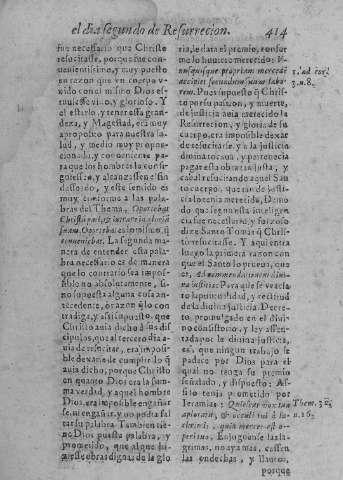 el dia segundo de Resurrecion. 414
fue necessario que Christo
resucitasse, porque fue con-
uenientissimo, y muy puesto
en razon que vn cuerpo v-
nido con el mismo Dios es-
tuuiesse viuo, y glorioso. Y
el estarlo, y tener esta gran-
deza, y Magestad, era muy
aproposito para nuestra sa-
lud, y medio muy propor-
cionado, y conueniente pa-
ra que los hombres la con-
siguiessen, y alcançassen el fin
desseado, y este sentido es
muy conforme a las pala-
bras del Thema, Oportebat
Christũ pati, & intrare in gloriã
suam. Oportebat es lo mismo, q̃
conueniebat. La segunda ma-
nera de entender esta pala-
bra necessario es de manera
que lo contrario sea impos-
sible no absolutamente, si-
no supuesta alguna cosa an-
tecedente, o razon q̃ lo con-
tradiga, y assi supuesto que
Christo auia dicho a sus dis-
cipulos, que al tercero dia a-
uia de resucitar, era impossi-
ble dexarse de cumplir lo q̃
auia dicho, porque Christo
en quanto Dios era la suma
verdad, y aquel hombre
Dios, era impossible engañar
se, ni engañar, y no podia fal
tar su palabra. Tambien tie-
ne Dios puesta palabra, y
prometido, que al que hi-
ziesse obras dignas de la glo
ria, le dara el premio, confor-
me lo huuiere merecido: V-
nusquisque propriam mercedẽ
accipiet secundum suum labo-
rem. Pues impuesto q̃ Chris-
to por su passion, y muerte,
de justicia auia merecido la
Resurreccion, y gloria de su
cuerpo, era impossible dexar
de resucitarse: y a la justicia
diuina tocaua, y pertenecia
pagar esta obra tã justa, y
cabal resucitando aquel San
to cuerpo, que tan de justi-
cia lo tenia merecido. De mo
do que segun esta inteligen-
cia fue necessario, y forçoso
dize Santo Tomas q̃ Christ-
to resucitasse. Y aqui entra
luego la primera razon con
que el Santo lo prueua, que
es, Ad commendationem diui-
næ iustitiæ. Para que se vea cla-
ro la puntualidad, y rectitud
de la diuina justicia. Decre-
to, promulgado en el diui-
no consistorio, y ley assen-
tada por la diuina justicia
es; que ningun trabajo se
padece por Dios para el
qual no tenga su premio
señalado, y dispuesto; As-
si lo tenia prometido por
Ieremias: Quiescat vox tua
a ploratu, & oculi tui à la-
chrimis, quia merces est o-
peri tuo. Enjuguense las la-
grimas, no aya mas, cessen
las endechas, y llantos,
porque
1. ad cor.
3. n. 8.
n. 16.